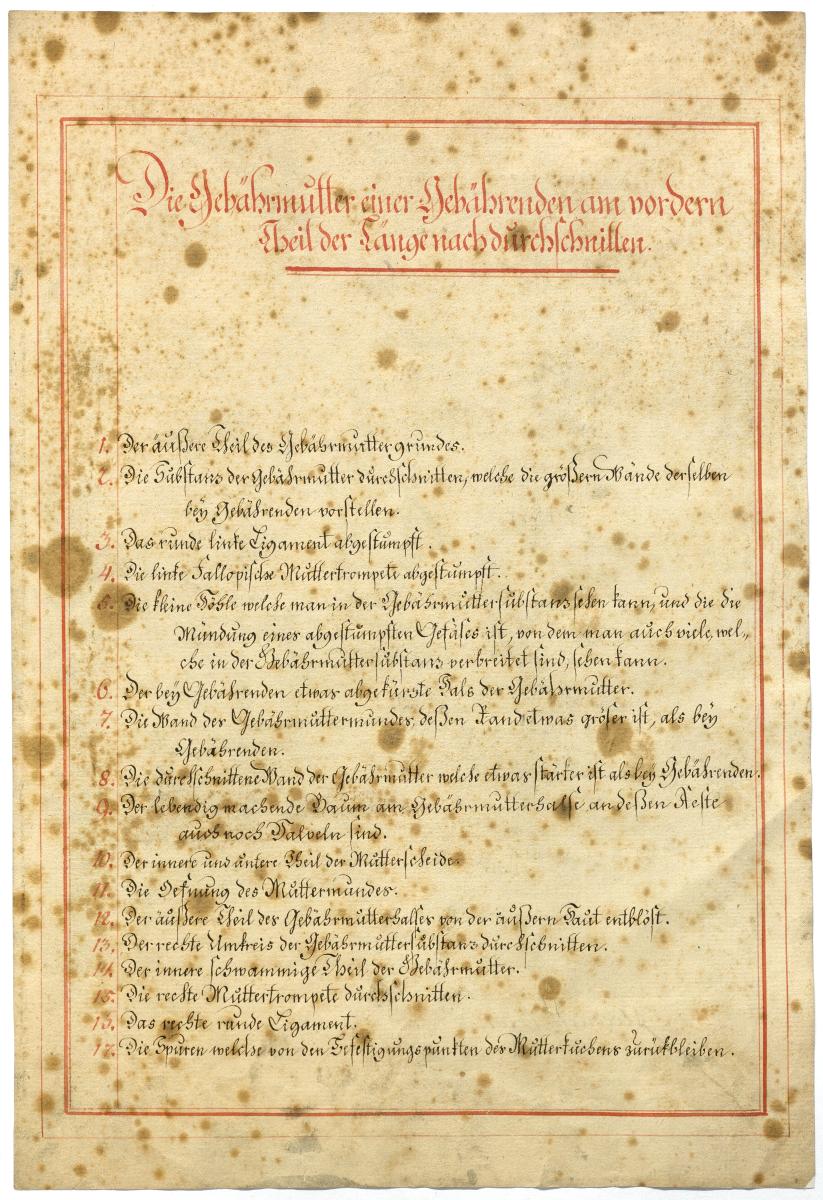 Die Gebährmutter einer Gebährenden am vordern
Theil der Länge nach durchschnitten.
1. Der äußere Theil des Gebährmuttergrundes.
2. Die Substanz der Gebährmutter durchschnitten, welche die größern Wände derselben
bey Gebährenden vorstellen.
3. Das runde linke Ligament abgestumpft.
4. Die linke Fallopische Muttertrompete abgestumpft.
5. Die kleine Höhle welche man in der Gebährmuttersubstanz sehen kann, und die die
Mündung eines abgestumpften Gefäses ist, von dem man auch viele, wel-
che in der Gebährmuttersubstanz verbreitet sind, sehen kann.
6. Der bey Gebährenden etwas abgekürzte Hals der Gebährmutter.
7. Die Wand des Gebährmuttermundes, deßen Rand etwas gröser ist, als bey
Gebährenden.
8. Die durchschnittene Wand der Gebährmutter welche etwas stärker ist als bey Gebährenden.
9. Der lebendig machende Baum am Gebährmutterhalse, an deßen Aeste
auch noch Valveln sind.
10. Der innere und untere Theil der Mutterscheide.
11. Die Oefnung des Muttermundes.
12. Der äußere Theil des Gebährmutterhalses von der äußern Haut entblöst.
13. Der rechte Umkreis der Gebährmuttersubstanz durchschnitten.
14. Der innere schwammige Theil der Gebährmutter.
15. Die rechte Muttertrompete durchschnitten.
16. Das rechte runde Ligament.
17. Die Spuren welche von den Befestigungspunkten des Mutterkuchens zurükbleiben.